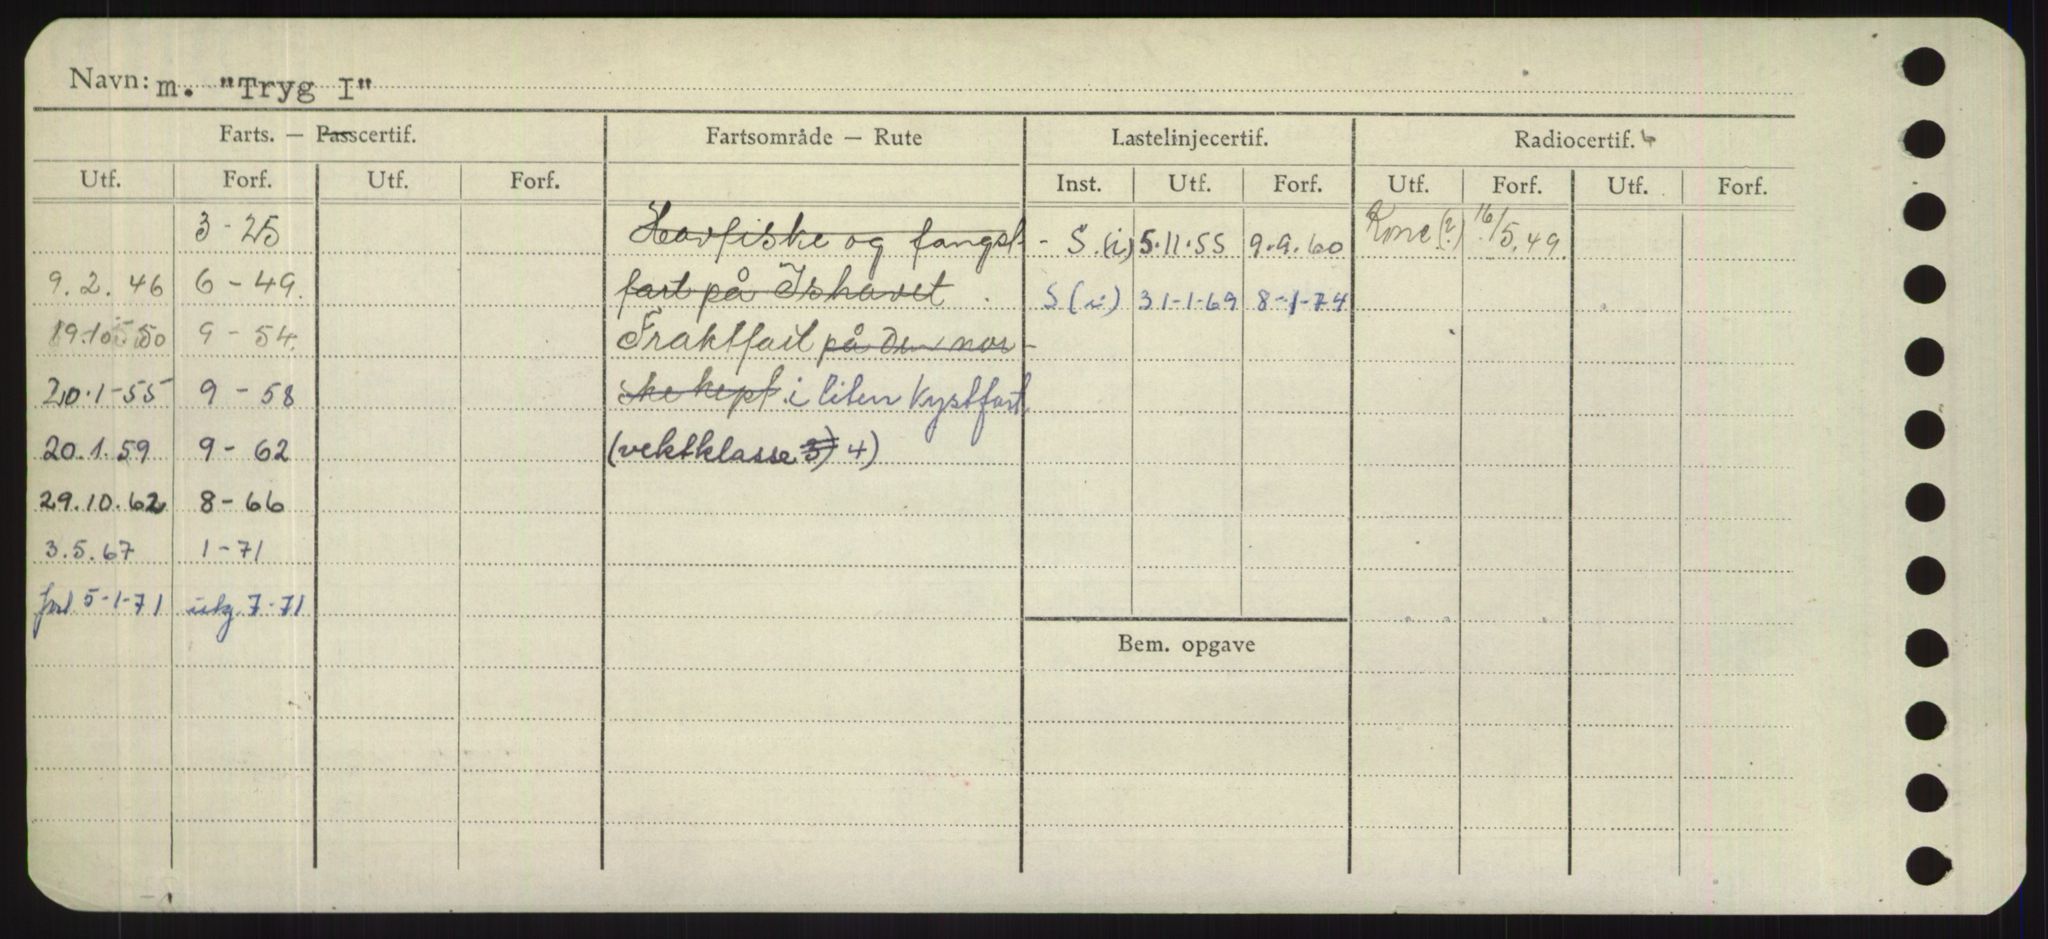 Navn: m. "Tryg I"
Farts. — Passcertif. Fartsområde — Rute Lastelinjecertif. Radiocertif.
Utf. Forf. Utf. Forf. Inst. Utf. Forf. Utf. Forf. Utf. Forf.
3 - 25 Havfiske og fangst- S.(i) 5.11.55 9.9.60 (?) 16/5.49.
9.2.46 6 - 49. fart på Ishavet. S(i) 31-1-69 8-1-74
19.10.50 9 - 54. Fraktfart på den nor-
20.1-55 9 - 58 ske kyst i liten Kystfart
20.1.59 9 - 62 (vektklasse 3) 4)
29.10.62 8 - 66
3.5.67 1 - 71
5-1-71 7-71
Bem. opgave